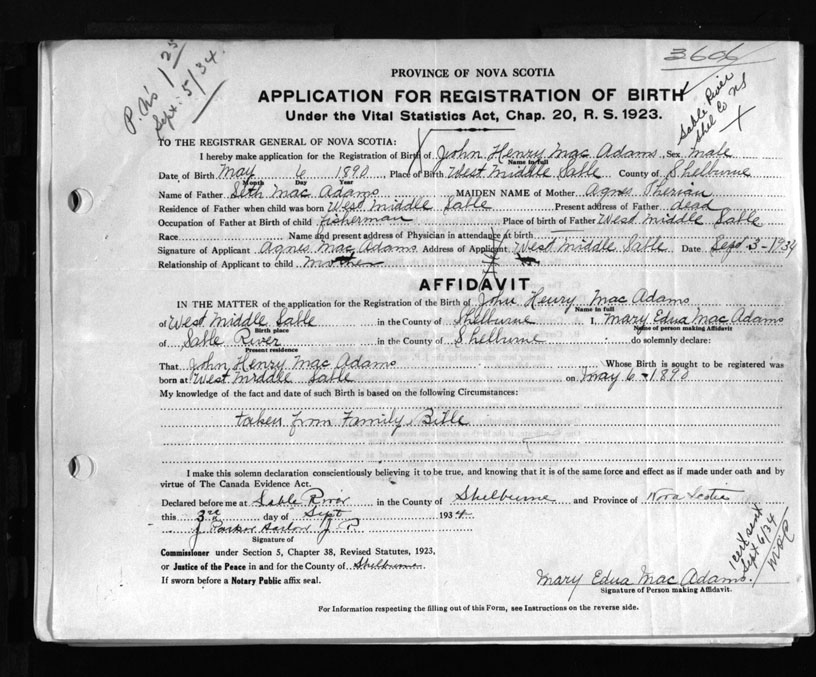 3606
P. N's 1 25
Sept. 5/34.
PROVINCE OF NOVA SCOTIA
APPLICATION FOR REGISTRATION OF BIRTH
Under the Vital Statistics Act, Chap. 20, R. S. 1923.
Sable River
Shel Co NS
X
TO THE REGISTRAR GENERAL OF NOVA SCOTIA:
I hereby make application for the Registration of Birth of John Henry Mac Adams Sex Male
Name in full
Date of Birth May 6 1890 Place of Birth West Middle Sable County of Shelburne
Month Day Year
Name of Father Seth Mac Adams MAIDEN NAME of Mother Agnes
Residence of Father when child was born West Middle Sable Present address of Father dead
Occupation of Father at Birth of child fisherman Place of birth of Father West Middle Sable
Race Name and present address of Physician in attendance at birth
Signature of Applicant Agnes Mac Adams Address of Applicant West Middle Sable Date Sept 3-1934
Relationship of Applicant to child Mother
AFFIDAVIT
IN THE MATTER of the application for the Registration of the Birth of John Henry Mac Adams
Name in full
of West Middle Sable in the County of Shelburne I, Mary Edna Mac Adams
Birth place Name of person making Affidavit
of Sable River in the County of Shelburne do solemnly declare:
Present residence
That John Henry Mac Adams Whose Birth is sought to be registered was
born at West Middle Sable on May 6-1890
My knowledge of the fact and date of such Birth is based on the following Circumstances:
taken from Family Bible
I make this solemn declaration conscientiously believing it to be true, and knowing that it is of the same force and effect as if made under oath and by
virtue of The Canada Evidence Act.
Declared before me at Sable River in the County of Shelburne and Province of Nova Scotia
this 3rd day of Sept 1934
J. Parker Harlow J P
Signature of
Commissioner under Section 5, Chapter 38, Revised Statutes, 1923,
or Justice of the Peace in and for the County of Shelburne
If sworn before a Notary Public affix seal.
1 cert sent
Sept 6/34
Mary Edna Mac Adams.
Signature of Person making Affidavit.
For Information respecting the filling out of this Form, see Instructions on the reverse side.